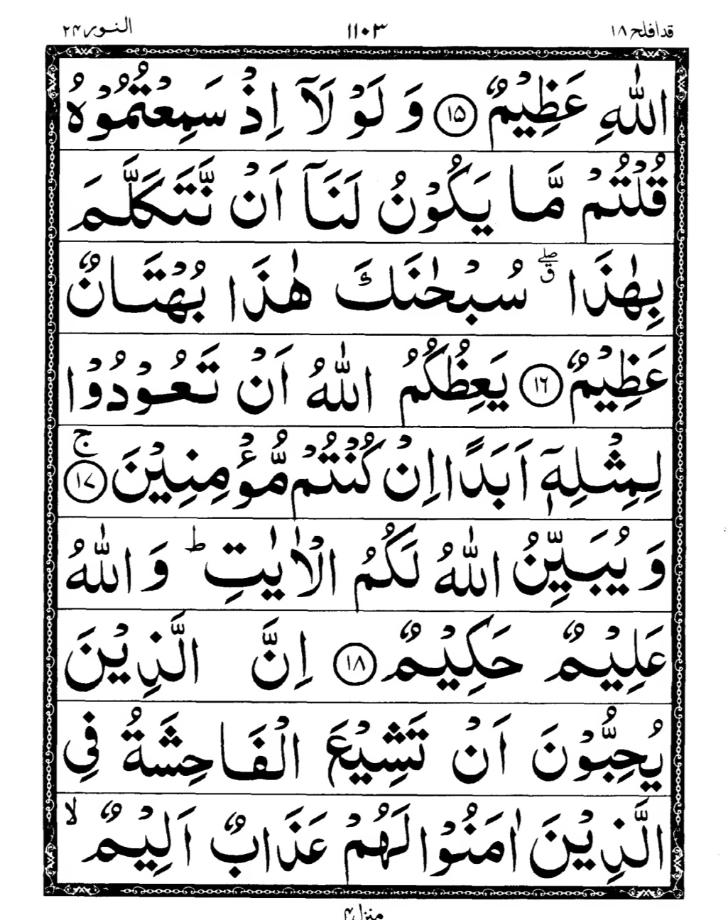 قد افلح ۱۸ ۱۱۰۳ النور ۲۴
اللّٰهِ عَظِيْمٌ ۝۱۵ وَ لَوْ لَاۤ اِذْ سَمِعْتُمُوْهُ
قُلْتُمْ مَّا يَكُوْنُ لَنَاۤ اَنْ نَّتَكَلَّمَ
بِهٰذَا ۖق سُبْحٰنَكَ هٰذَا بُهْتَانٌ
عَظِيْمٌ ۝۱۶ يَعِظُكُمُ اللّٰهُ اَنْ تَعُوْدُوْا
لِمِثْلِهٖۤ اَبَدًا اِنْ كُنْتُمْ مُّؤْمِنِيْنَ ۝۱۷ ج
وَ يُبَيِّنُ اللّٰهُ لَكُمُ الْاٰيٰتِ ؕ وَ اللّٰهُ
عَلِيْمٌ حَكِيْمٌ ۝۱۸ اِنَّ الَّذِيْنَ
يُحِبُّوْنَ اَنْ تَشِيْعَ الْفَاحِشَةُ فِى
الَّذِيْنَ اٰمَنُوْا لَهُمْ عَذَابٌ اَلِيْمٌ ۙ
منزل ۴